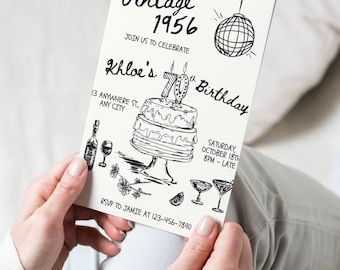 Vintage
1956
JOIN US TO CELEBRATE
Khloe's 70th Birthday
ANYWHERE ST.,
ANY CITY
SATURDAY,
OCTOBER 18TH
8PM - LATE
RSVP TO JAMIE AT 123-456-7890